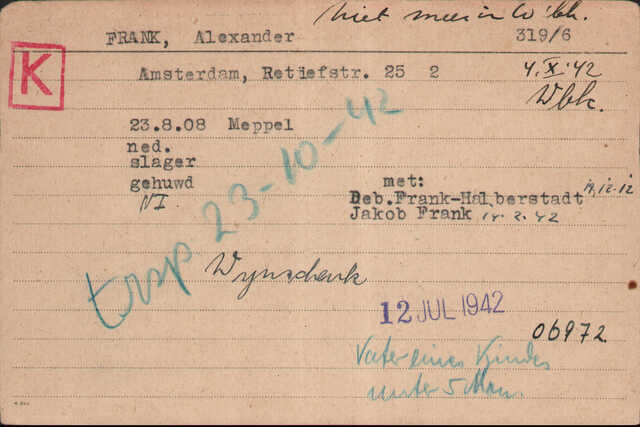 niet meer in W'bk.
FRANK, Alexander 319/6
K
Amsterdam, Retiefstr. 25 2 4.X.42
Wbk.
23.8.08 Meppel
ned.
slager
gehuwd met:
NI Deb.Frank-Halberstadt 19.12.12
Jakob Frank 14.2.42
trsp 23-10-42
Wynschenk
12 JUL 1942
06972
Vater eines Kindes
unter 5 Mon.